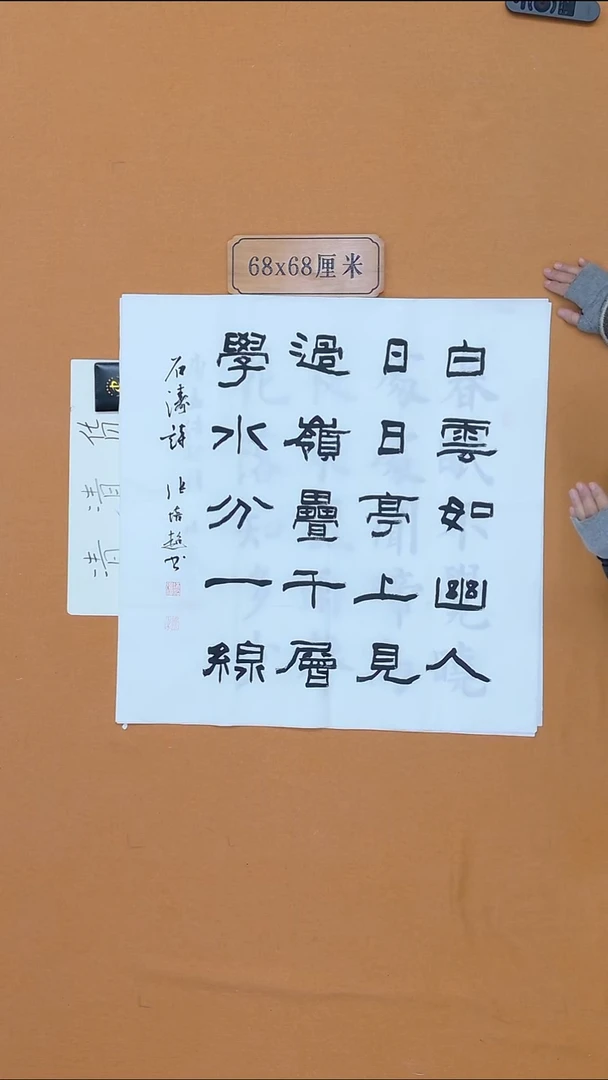 68x68厘米
白雲如幽人
日日亭上見
過嶺疊千層
學水分一線
石濤詩